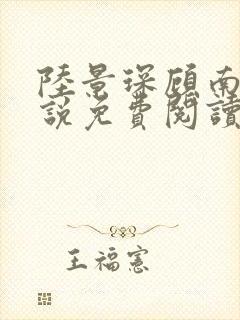 陸景琛顧南
說免費閱讀
王福憲